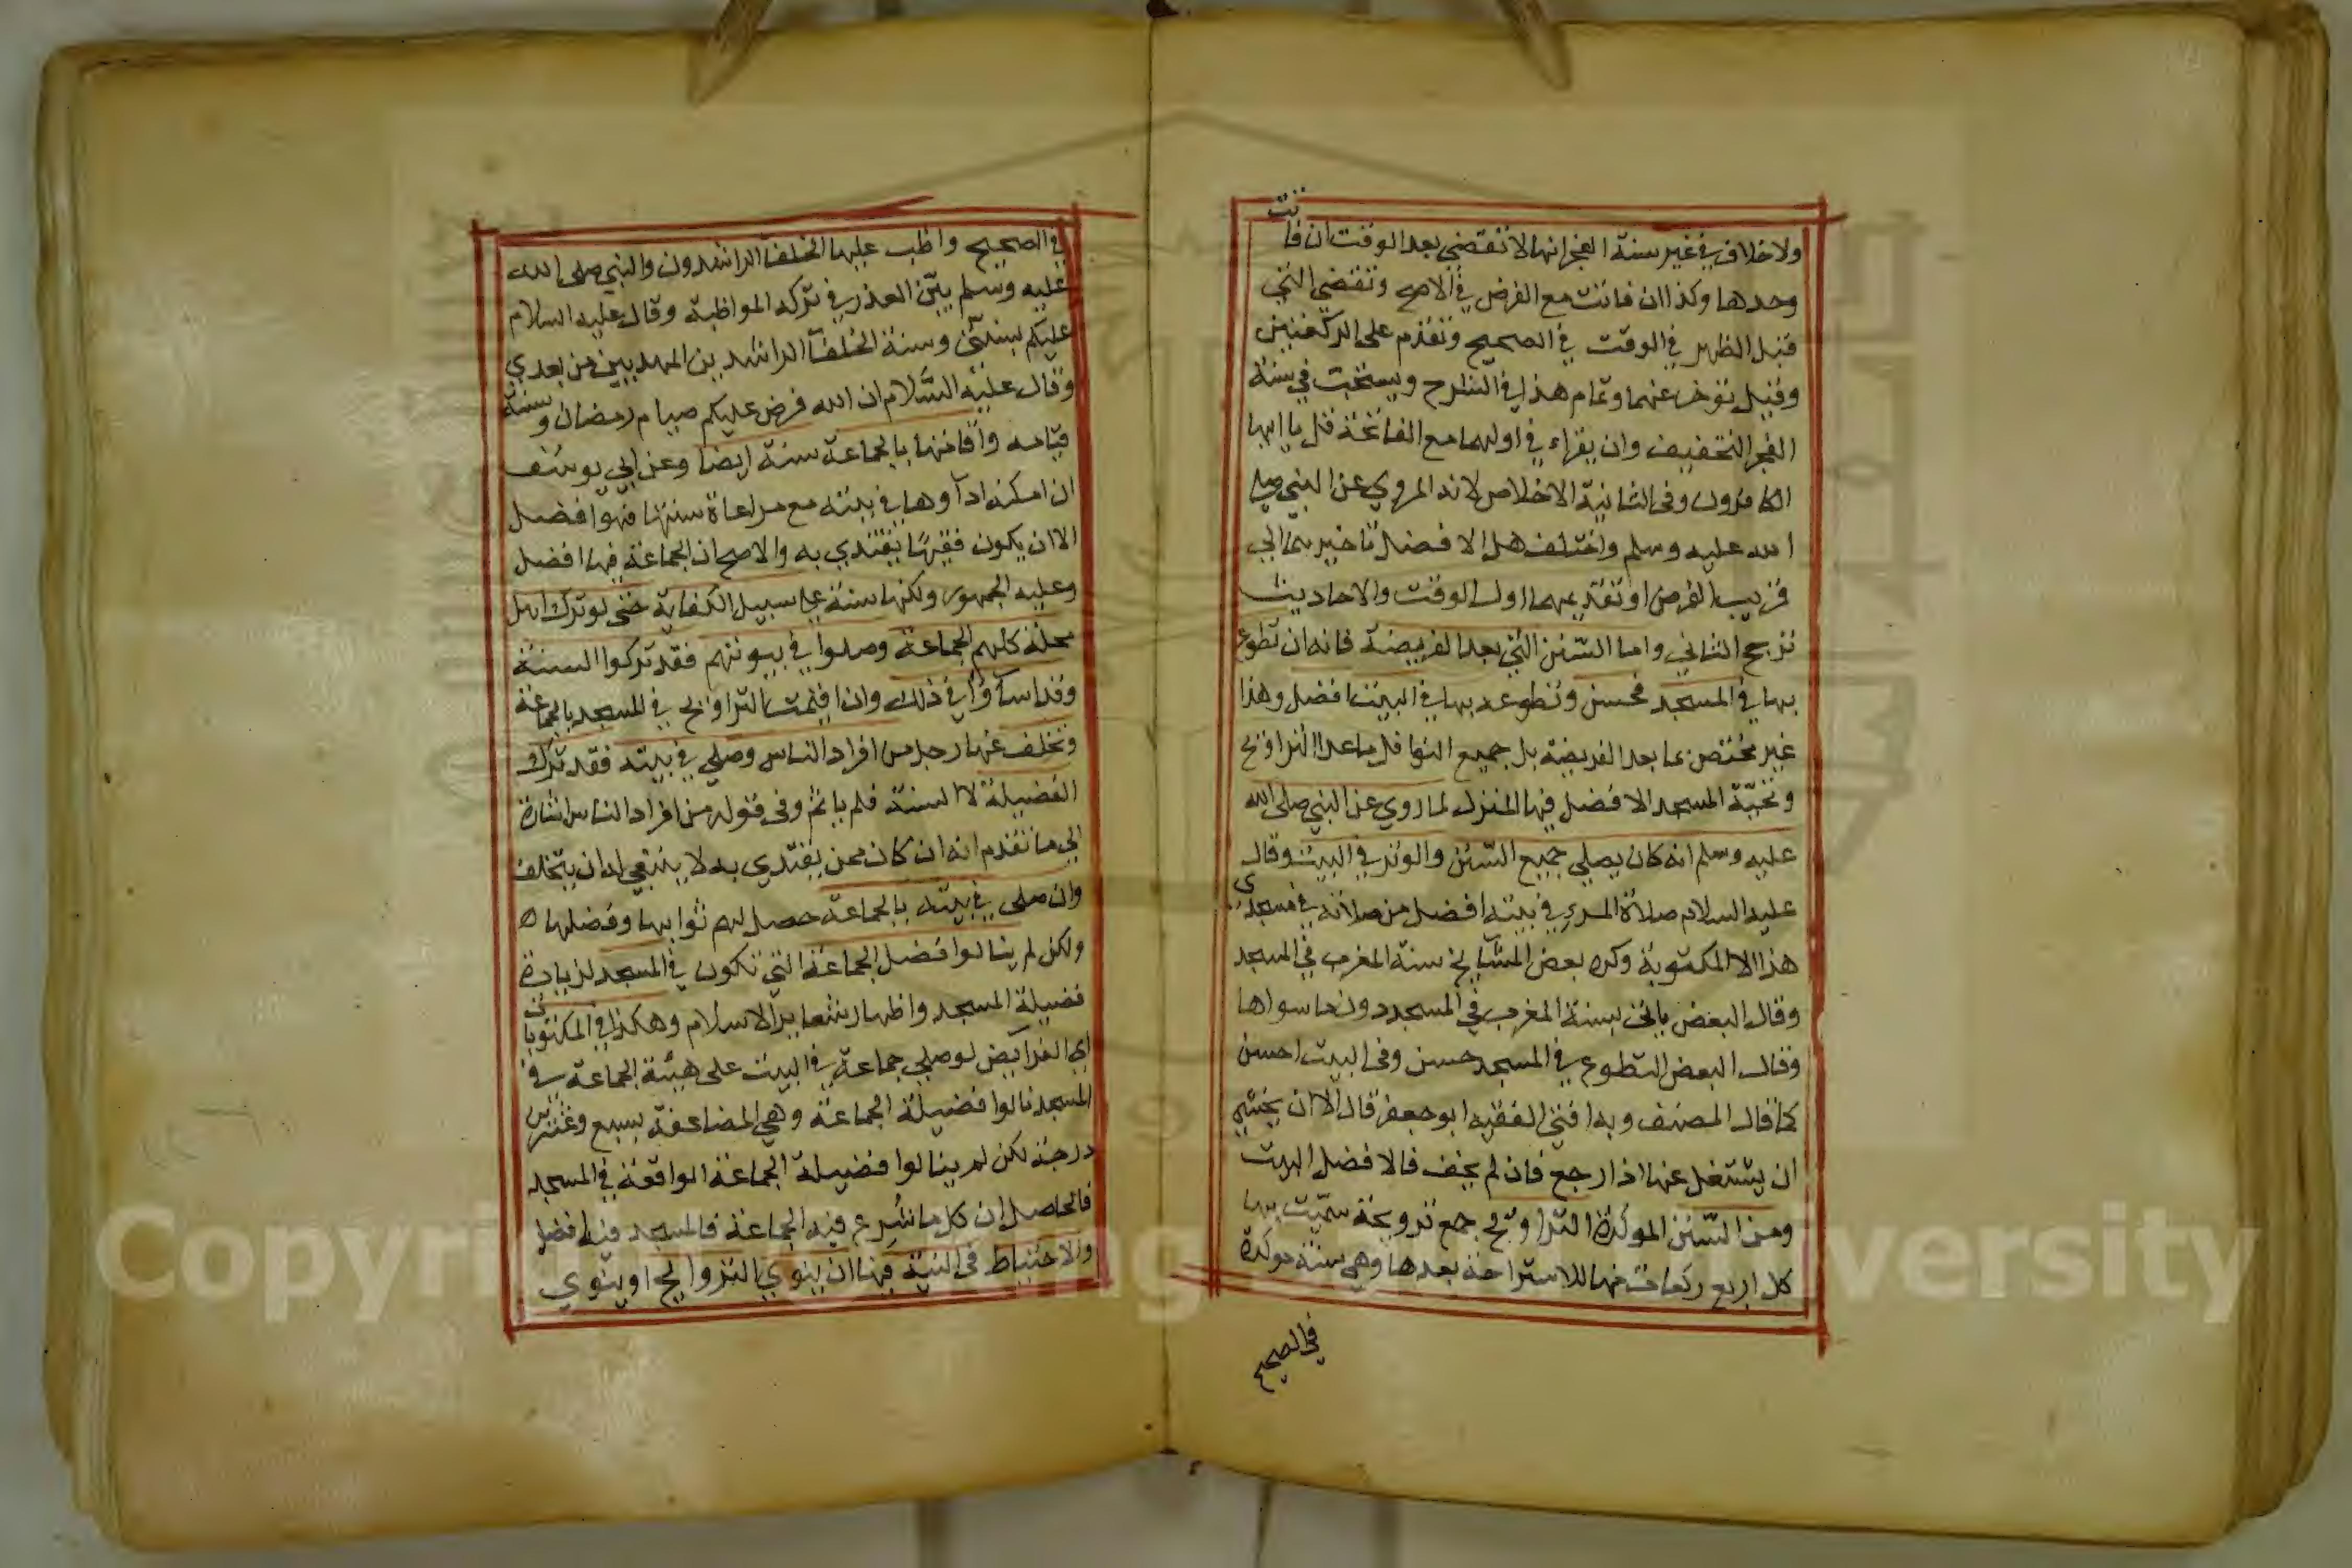 ولا خلاف في غير سنة الفجر انها لا تقضي بعد الوقت ان فاتت
وحدها وكذا ان فاتت مع الفرض في الاصح وتقضي التي
قبل الظهر في الوقت في الصحيح وتقدم على الركعتين
وقيل توخر عنهما وتمام هذا في الشرح ويستحب في سنة
الفجر التخفيف وان يقراء في اولهما مع الفاتحة قل يا ايها
الكافرون وفى الثانية الاخلاص لانه المروي عن النبي صلى
الله عليه وسلم واختلف هل الافضل تاخيرهما الي
قريب الفرض او تقديمهما اول الوقت والاحاديث
ترجح الثاني واما السنن التي بعد الفريضة فانه ان تطوع
بها في المسجد فحسن وتطوعه بها في البيت افضل وهذا
غير مختص بما بعد الفريضة بل جميع النوافل ما عدا التراويح
وتحيّة المسجد الافضل فيها المنزل لما روي عن النبي صلى الله
عليه وسلم انه كان يصلي جميع السنن والوتر في البيت وقال
عليه السلام صلاة المرء في بيته افضل من صلاته في مسجدي
هذا الا المكتوبة وكره بعض المشآيخ سنة المغرب في المسجد
وقال البعض ياتى بسنة المغرب في المسجد دون ما سواها
وقال البعض التطوع في المسجد حسن وفى البيت احسن
كما قال المصنف وبه افتى الفقيه ابو جعفر قال الا ان يخشي
ان يشتغل عنها اذا رجع فان لم يخف فالافضل البيت
ومن السنن الموكدة التراويح جمع ترويحة سمّيت بها
كل اربع ركعات منها للاستراحة بعدها وهي سنة موكدة
في الصحيح
في الصحيح واظب عليها الخلفآ الراشدون والنبي صلى الله
عليه وسلم بيّن العذر في تركه المواظبة وقال عليه السلام
عليكم بسنتي وسنة الخلفآ الراشدين المهديين من بعدي
وقال عليه السلام ان الله فرض عليكم صيام رمضان وسنة
قيامه واقامتها بالجماعة سنة ايضا وعن ابي يوسف
ان امكنه ادآوها في بيته مع مراعاة سنتها فهو افضل
الا ان يكون فقيهًا يقتدي به والاصح ان الجماعة فيها افضل
وعليه الجمهور ولكنها سنة على سبيل الكفاية حتى لو ترك اهل
محلة كلهم الجماعة وصلوا في بيوتهم فقد تركوا السنة
وقد اسآؤا في ذلك وان اقيمت التراويح في المسجد بالجماعة
وتخلف عنها رجل من افراد الناس وصلي في بيته فقد ترك
الفضيلة لا السنة فلم ياثم وفى قوله من افراد الناس اشارة
الي ما تقدم انه ان كان ممن يقتدي به لا ينبغي له ان يتخلف
وان صلى في بيته بالجماعة حصل لهم ثوابها وفضلها ه
ولكن لم ينالوا فضل الجماعة التي تكون في المسجد لزيادة
فضيلة المسجد واظهار شعاير الاسلام وهكذا في المكتوبات
اي الفرآيض لو صلي جماعة في البيت على هيئة الجماعة في
المسجد نالوا فضيلة الجماعة وهي المضاعفة بسبع وعشرين
درجة لكن لم ينالوا فضيلة الجماعة الواقعة في المسجد
فالحاصل ان كل ما شرع فيه الجماعة فالمسجد فيه افضل
والاحتياط في النية فيها ان ينوي التروايح او ينوي
Copyri g versity